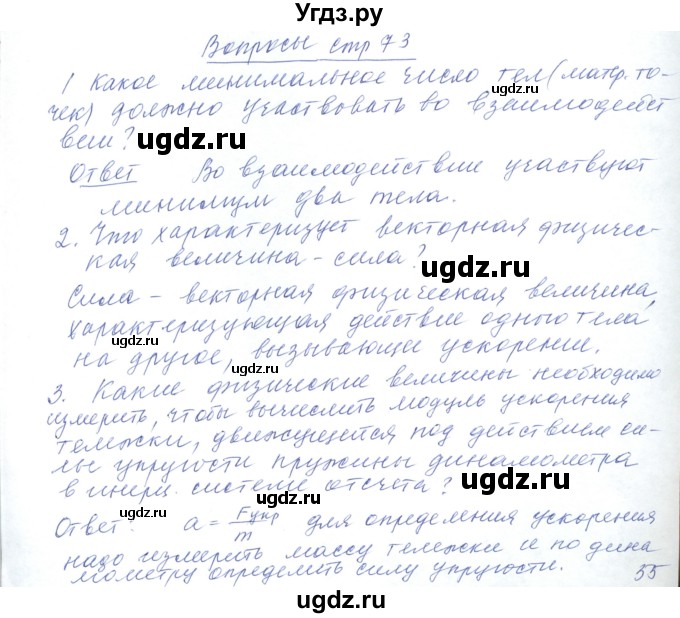 Угдз.ру
Вопросы стр 73
1 Какое минимальное число тел (матер. то-
чек) должно участвовать во взаимодейст
вии?
ugdz.ru
ugdz.ru
Ответ Во взаимодействии участвуют
минимум два тела.
2. Что характеризует векторная физичес-
кая величина - сила?
ugdz.ru
Сила - векторная физическая величина,
характеризующая действие одного тела
ugdz.ru
на другое, вызывающее ускорение.
ugdz.ru
3. Какие физические величины необходимо
измерить, чтобы вычислить модуль ускорения
тележки, движущейся под действием си-
лы упругости пружины динамометра
в инерц. системе отсчета?
ugdz.ru
ugdz.ru
Ответ: a = Fупр/m для определения ускорения
надо измерить массу тележки и по дина
мометру определить силу упругости. 55
ugdz.ru
ugdz.ru